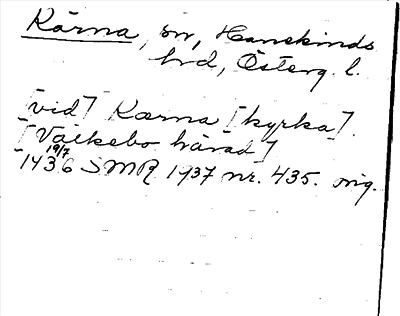 Kärna, sn, Hanekinds
hrd, Österg. l.
[vid] Kærna [kyrka].
[Valkebo härad]
19/7
1436 SMR 1937 nr. 435. orig.